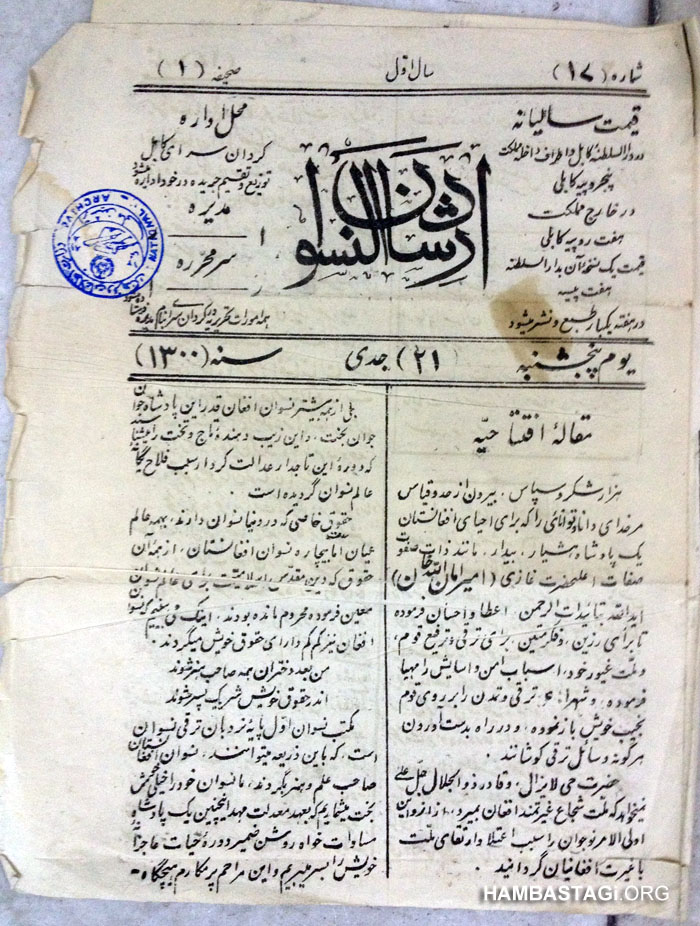 شماره (۱۷)
سال اول
صحیفه (۱)
قیمت سالیانه
در دار السلطنهٔ کابل و اطراف داخلهٔ مملکت
پنجروپیه کابلی
در خارج مملکت
هفت روپیه کابلی
قیمت یک نسخهٔ آن بدار السلطنه
هفت پیسه
در هفته یکبار طبع و نشر میشود
ارشاد النسوان
محل اداره
کردان سرای کابل
توزیع و تقسیم جریده در خود اداره میشود
مدیره
سر محرره
همه امورات تحریریه در کردان سرای بنام مدیره فرستاده میشود
یوم پنجشنبه (۲۱) جدی سنه (۱۳۰۰)
مقالهٔ افتتاحیّه
هزار شکر و سپاس، بیرون از حد و قیاس
مر خدای دانا و توانای را که برای احیای افغانستان
یک پادشاه هشیار، بیدار، مانند ذات صفوت
صفات اعلیحضرت غازی (امیر امان الله خان)
ایدالله بتائیدات الرحمن، اعطا و احسان فرموده
تا برای رزین، و فکر متین، برای ترقی و ترفع قوم،
و ملت غیور خود، اسباب امن و اسایش را مهیا
فرموده، و شهراه ترقی و تمدن را بر روی قوم
نجیب خویش باز نموده، و در راه بدست آوردن
هر گونه وسائل ترقی کوشانند.
حضرت حی لایزال، و قادر ذو الجلال جل علی
میخواهد که ملت شجاع غیرتمند افغان نمیرد،، از ازو این
اولی الامر نوجوان را سبب اعتلا و ارتقای ملت
با غیرت افغانیان گردانید.
بلی از همه بیشتر نسوان افغان قدر این پادشاه جوان
جوان بخت، و این زیب دهندهٔ تاج و تخت را میشناسند
که دورهٔ این تاجدار عدالت کردار سبب فلاح یگانهٔ
عالم نسوان گردیده است.
حقوق خاصی که در دنیا نسوان دارند، بهمه عالم
عیان اما بیچاره نسوان افغانستان، از همهٔ آن
حقوق که دین مقدس اسلامیت برای عالم نسوان
معین فرموده محروم مانده بودند، اینک
افغان نیز کم کم دارای حقوق خویش میگردند.
من بعد دختران همه صاحب هنر شوند
اندر حقوق خویش شریک پسر شوند
مکتب نسوان اول پایهٔ نردبان ترقی نسوان
است، که باین ذریعه میتوانند، نسوان افغانستان
صاحب علم و هنر بگردند، ما نسوان خود را خیلی خوش
بخت میشماریم که بعهد معدلت مهد اینچنین یک پادشاه
مساوات خواه روشن ضمیر دورهٔ حیات عاجزانهٔ
خویش را بسر میبریم و این مراحم پر مکارم هیچگاه -
NATIONAL ARCHIVE
HAMBASTAGI.ORG